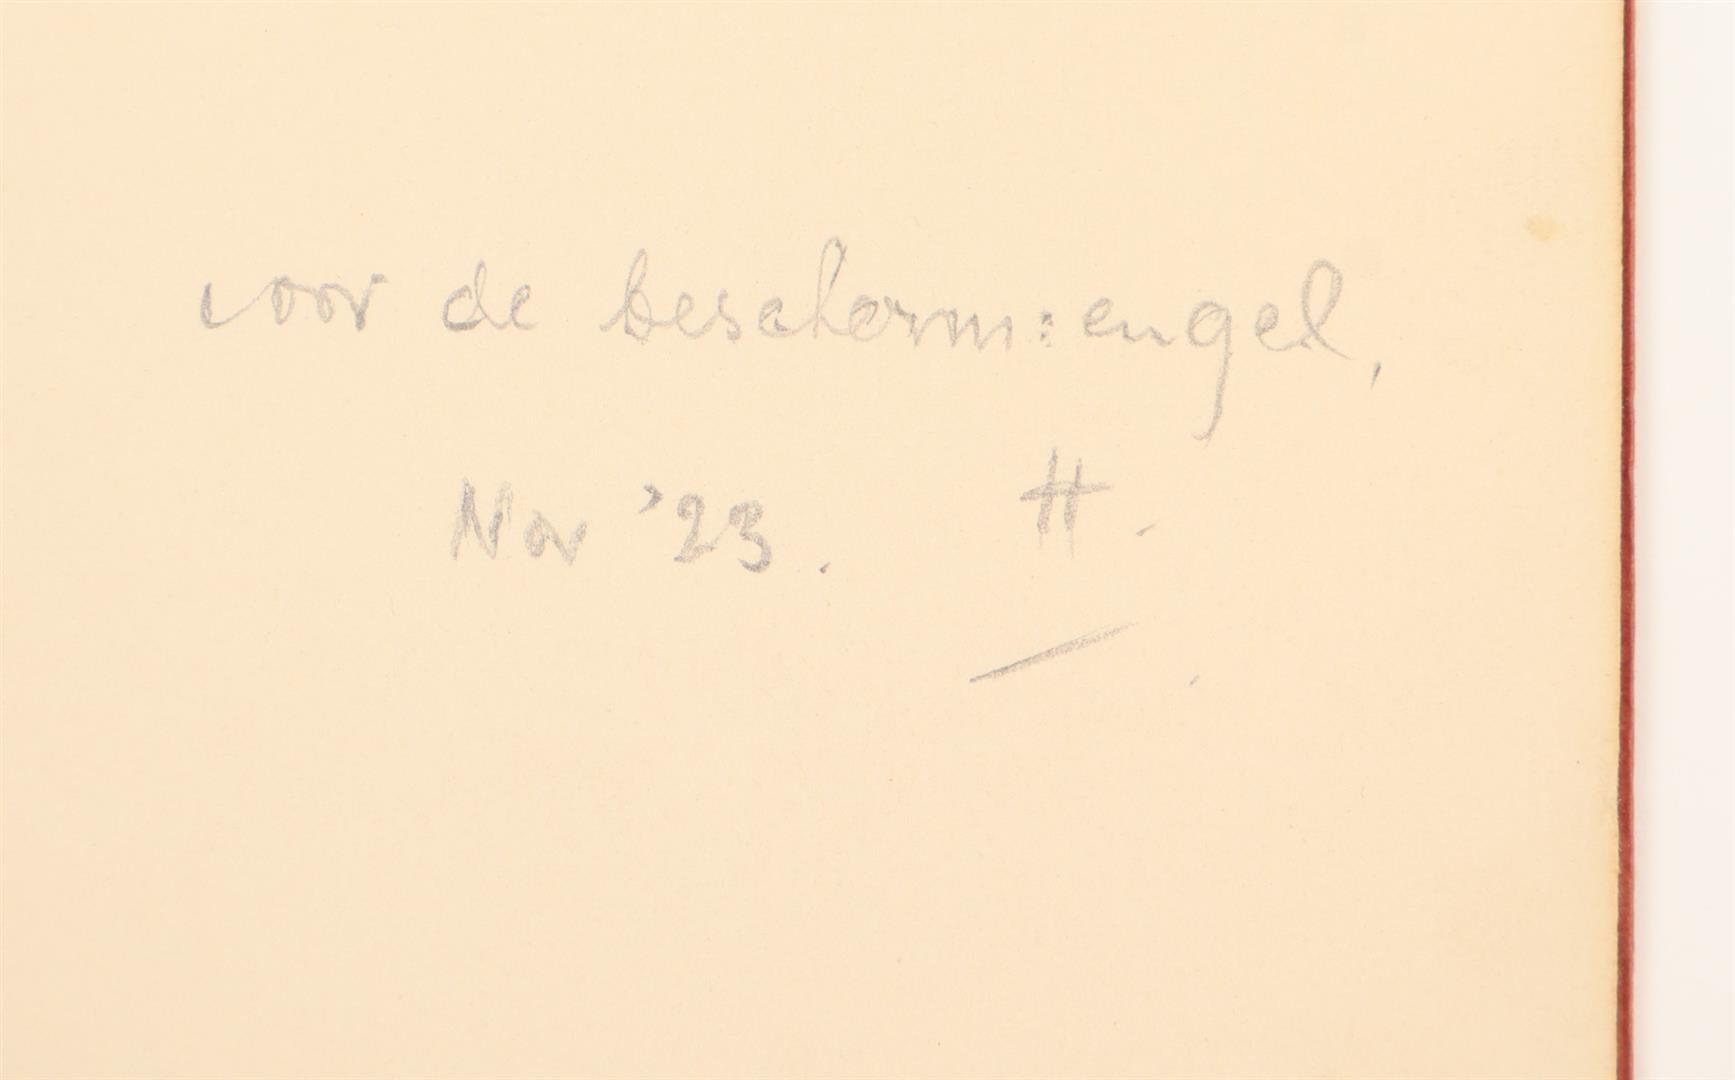 voor de bescherm: engel,
Nov '23. H.